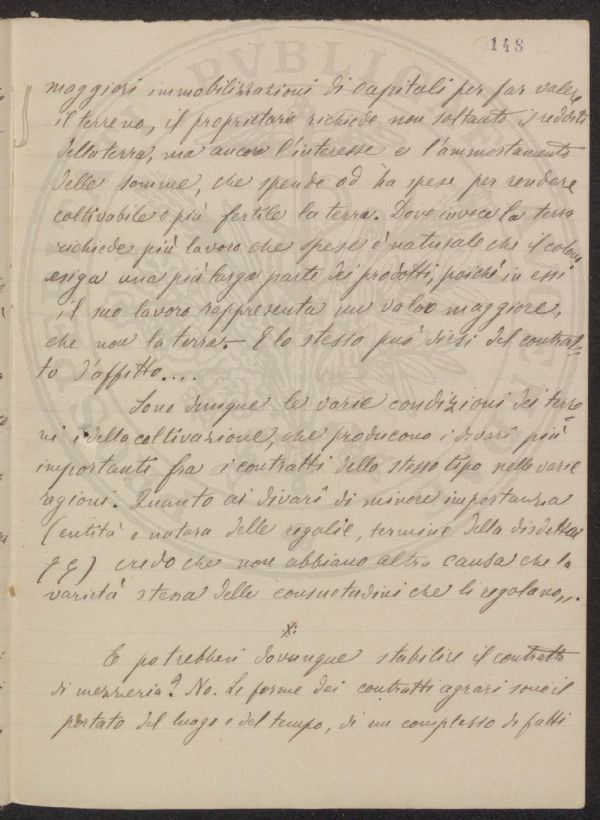 148
maggiori immobilizzazioni di capitali per far valere
il terreno, il proprietario richiede non soltanto il reddito
della terra, ma ancora l'interesse e l'ammortamento
delle somme, che spende od ha spese per rendere
coltivabile o più fertile la terra. Dove invece la terra
richiede più lavoro che spese è naturale che il colono
esiga una più larga parte dei prodotti, poiché in essi
il suo lavoro rappresenta un valore maggiore,
che non la terra. E lo stesso può dirsi del contrat=
to d'affitto....
Sono dunque le varie condizioni dei terre=
ni e della coltivazione, che producono i divarî più
importanti fra i contratti dello stesso tipo nelle varie
regioni. Quanto ai divarî di minore importanza
(entità e natura delle regalie, termine della disdetta
) credo che non abbiano altra causa che la
varietà stessa delle consuetudini che li regolano,,.
E potrebbesi dovunque stabilire il contratto
di mezzeria? No. Le forme dei contratti agrari sono il
portato del luogo e del tempo, di un complesso di fatti